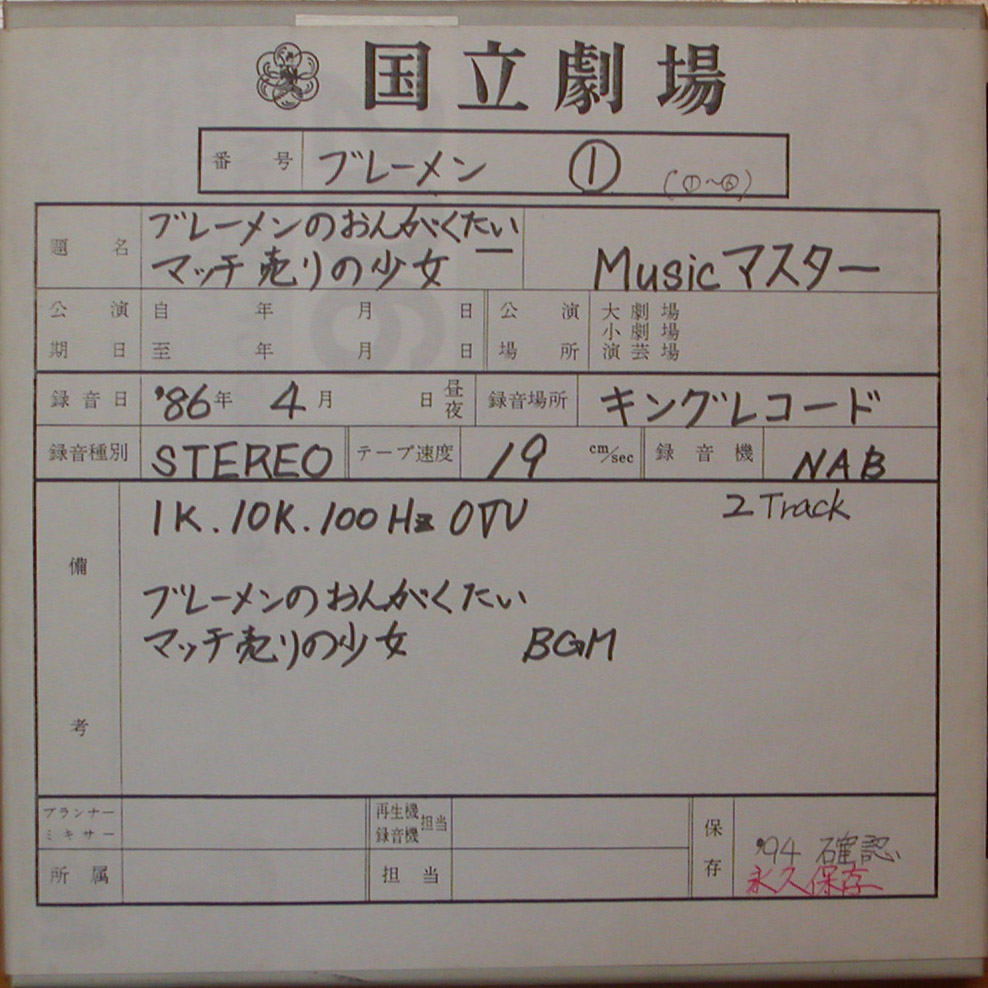 国立劇場
番号 ブレーメン ① (①～⑥)
題名 ブレーメンのおんがくたい
マッチ売りの少女 Musicマスター
公演期日 自 年 月 日
至 年 月 日
公演場所 大劇場
小劇場
演芸場
録音日 '86年 4月 日 昼夜 録音場所 キングレコード
録音種別 STEREO テープ速度 19 cm/sec 録音機 NAB
備考 1K.10K.100Hz 0VU 2Track
ブレーメンのおんがくたい
マッチ売りの少女 BGM
プランナー
ミキサー
再生機
録音機 担当
所属 担当
保存 '94 確認
永久保存